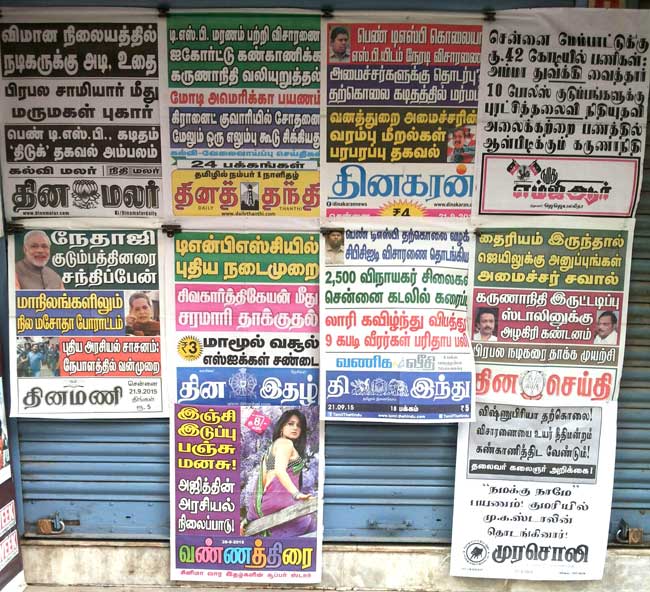 விமான நிலையத்தில்
நடிகருக்கு அடி, உதை
பிரபல சாமியார் மீது
மருமகள் புகார்
பெண் டி.எஸ்.பி., கடிதம்
'திடுக்' தகவல் அம்பலம்
கல்வி மலர் நிதி மலர்
தின மலர்
www.dinamalar.com
டி.எஸ்.பி. மரணம் பற்றி விசாரணை
ஐகோர்ட்டு கண்காணிக்க
கருணாநிதி வலியுறுத்தல்
மோடி அமெரிக்கா பயணம்
கிரானைட் குவாரியில் சோதனை
மேலும் ஒரு எலும்பு கூடு சிக்கியது
கல்வி-வேலைவாய்ப்பு செய்திகள்
24 பக்கங்கள்
தமிழில் நம்பர் 1 நாளிதழ்
தினத் தந்தி
DAILY THANTHI
www.dailythanthi.com
பெண் டிஎஸ்பி கொலையா
எஸ்.பி.யிடம் நேரடி விசாரணை
அமைச்சர்களுக்கு தொடர்பு
தற்கொலை கடிதத்தில் மர்மம்
வனத்துறை அமைச்சரின்
வரம்பு மீறல்கள்
பரபரப்பு தகவல்
தினகரன்
சென்னை ₹4 21.9.2015
சென்னை மேம்பாட்டுக்கு
ரூ.42 கோடியில் பணிகள்:
அம்மா துவக்கி வைத்தார்
10 போலீஸ் குடும்பங்களுக்கு
புரட்சித்தலைவி நிதியுதவி
அலைக்கற்றை பணத்தில்
ஆள்பிடிக்கும் கருணாநிதி
நமது
எம்ஜிஆர்
நேதாஜி
குடும்பத்தினரை
சந்திப்பேன்
மாநிலங்களிலும்
நில மசோதா போராட்டம்
புதிய அரசியல் சாசனம்:
நேபாளத்தில் வன்முறை
தினமணி
சென்னை
21.9.2015
திங்கள்
ரூ. 5
டிஎன்பிஎஸ்சியில்
புதிய நடைமுறை
சிவகார்த்திகேயன் மீது
சரமாரி தாக்குதல்
₹3 மாமூல் வசூல்
எஸ்ஐக்கள் சண்டை
தின இதழ்
பெண் டிஎஸ்பி தற்கொலை வழக்கு
சிபிசிஐடி விசாரணை தொடங்கியது
2,500 விநாயகர் சிலைகள்
சென்னை கடலில் கரைப்பு
லாரி கவிழ்ந்து விபத்து
9 கபடி வீரர்கள் பரிதாப பலி
வணிக வீதி
தி இந்து
21.09.15 18 பக்கம் ₹5
www.tamil.thehindu.com
தைரியம் இருந்தால்
ஜெயிலுக்கு அனுப்புங்கள்
அமைச்சர் சவால்
கருணாநிதி இருட்டடிப்பு
ஸ்டாலினுக்கு
அழகிரி கண்டனம்
பிரபல நடிகரை தாக்க முயற்சி
தின செய்தி
இஞ்சி
இடுப்பு
பஞ்சு
மனசு!
ரூ.8/-
அஜித்தின்
அரசியல்
நிலைப்பாடு
வண்ணத்திரை
சினிமா வார இதழ்களின் சூப்பர் ஸ்டார்
விஷ்ணுபிரியா தற்கொலை!
விசாரணையை உயர் நீதிமன்றம்
கண்காணித்திட வேண்டும்!
தலைவர் கலைஞர் அறிக்கை!
"நமக்கு நாமே"
பயணம்! குமரியில்
மு.க.ஸ்டாலின்
தொடங்கினார்!
முரசொலி